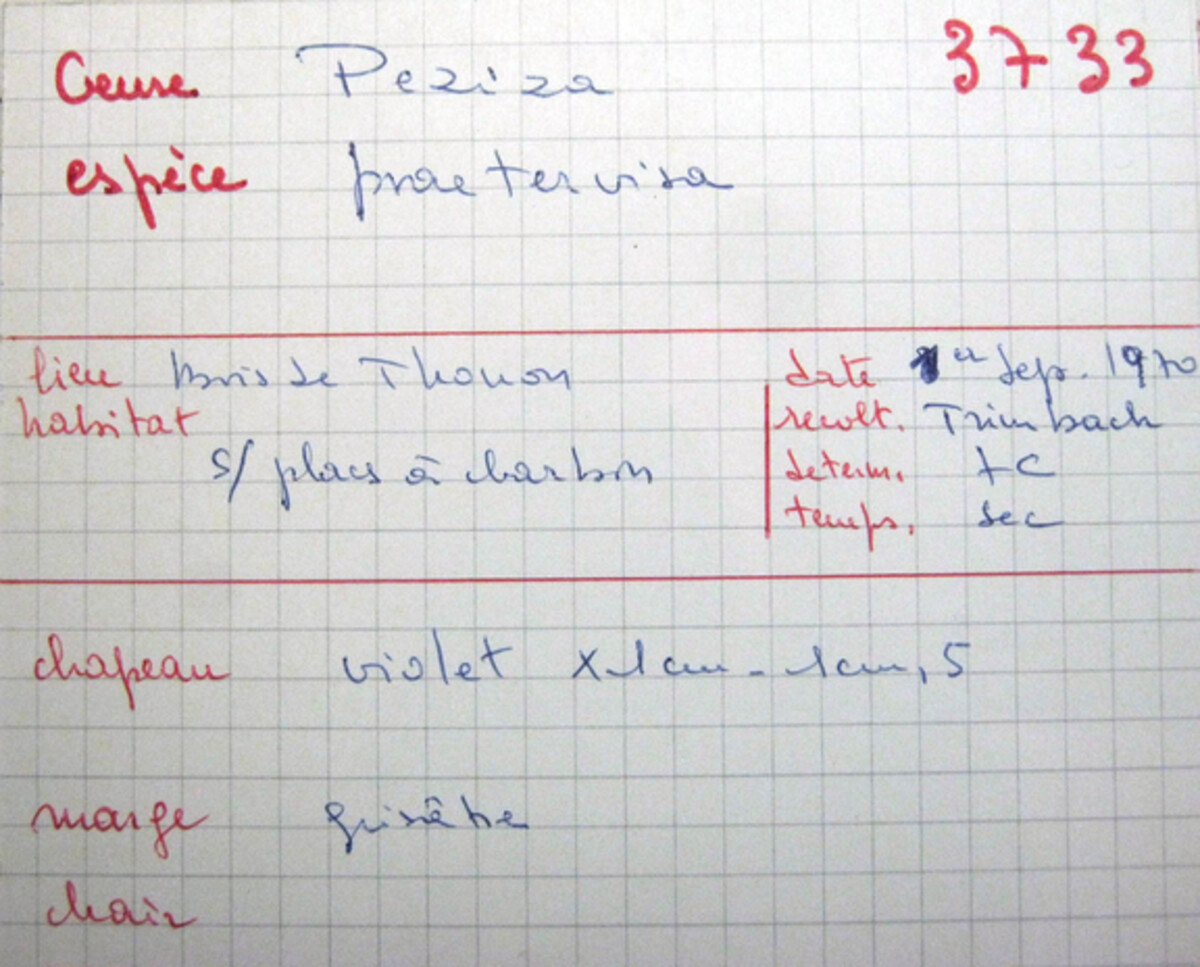 Genre Peziza 3733
espèce praetervisa
lieu Bois de Thonon date 1er Sep. 1970
habitat recolt. Trimbach
s/ places à charbon determ. tC
temps. sec
chapeau violet x 1cm - 1cm,5
marge grisâtre
chair